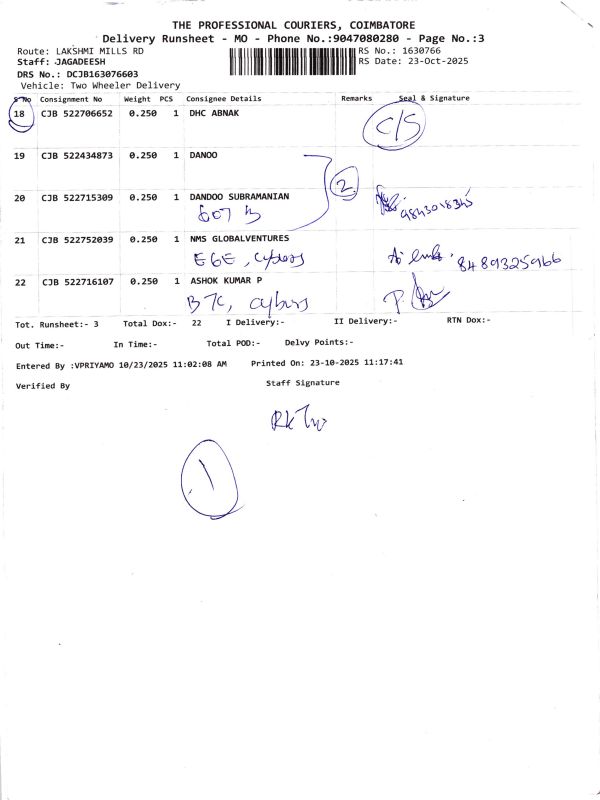 THE PROFESSIONAL COURIERS, COIMBATORE
Delivery Runsheet - MO - Phone No.:9047080280 - Page No.:3
Route: LAKSHMI MILLS RD RS No.: 1630766
Staff: JAGADEESH RS Date: 23-Oct-2025
DRS No.: DCJB163076603
Vehicle: Two Wheeler Delivery
S No Consignment No Weight PCS Consignee Details Remarks Seal & Signature
18 CJB 522706652 0.250 1 DHC ABNAK C/S
19 CJB 522434873 0.250 1 DANOO
2
20 CJB 522715309 0.250 1 DANDOO SUBRAMANIAN
607 B 9843018345
21 CJB 522752039 0.250 1 NMS GLOBALVENTURES
E6E, Cybers 8489325966
22 CJB 522716107 0.250 1 ASHOK KUMAR P
B7C, Cybers
Tot. Runsheet:- 3 Total Dox:- 22 I Delivery:- II Delivery:- RTN Dox:-
Out Time:- In Time:- Total POD:- Delvy Points:-
Entered By :VPRIYAMO 10/23/2025 11:02:08 AM Printed On: 23-10-2025 11:17:41
Verified By Staff Signature
1